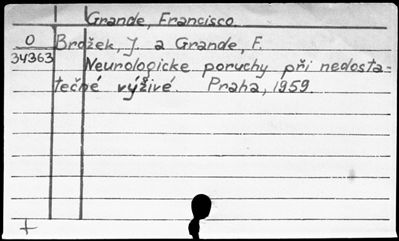 Grande, Francisco
O Brožek, J. a Grande, F.
34363 Neurologicke poruchy při nedosta-
tečné výživé. Praha, 1959.